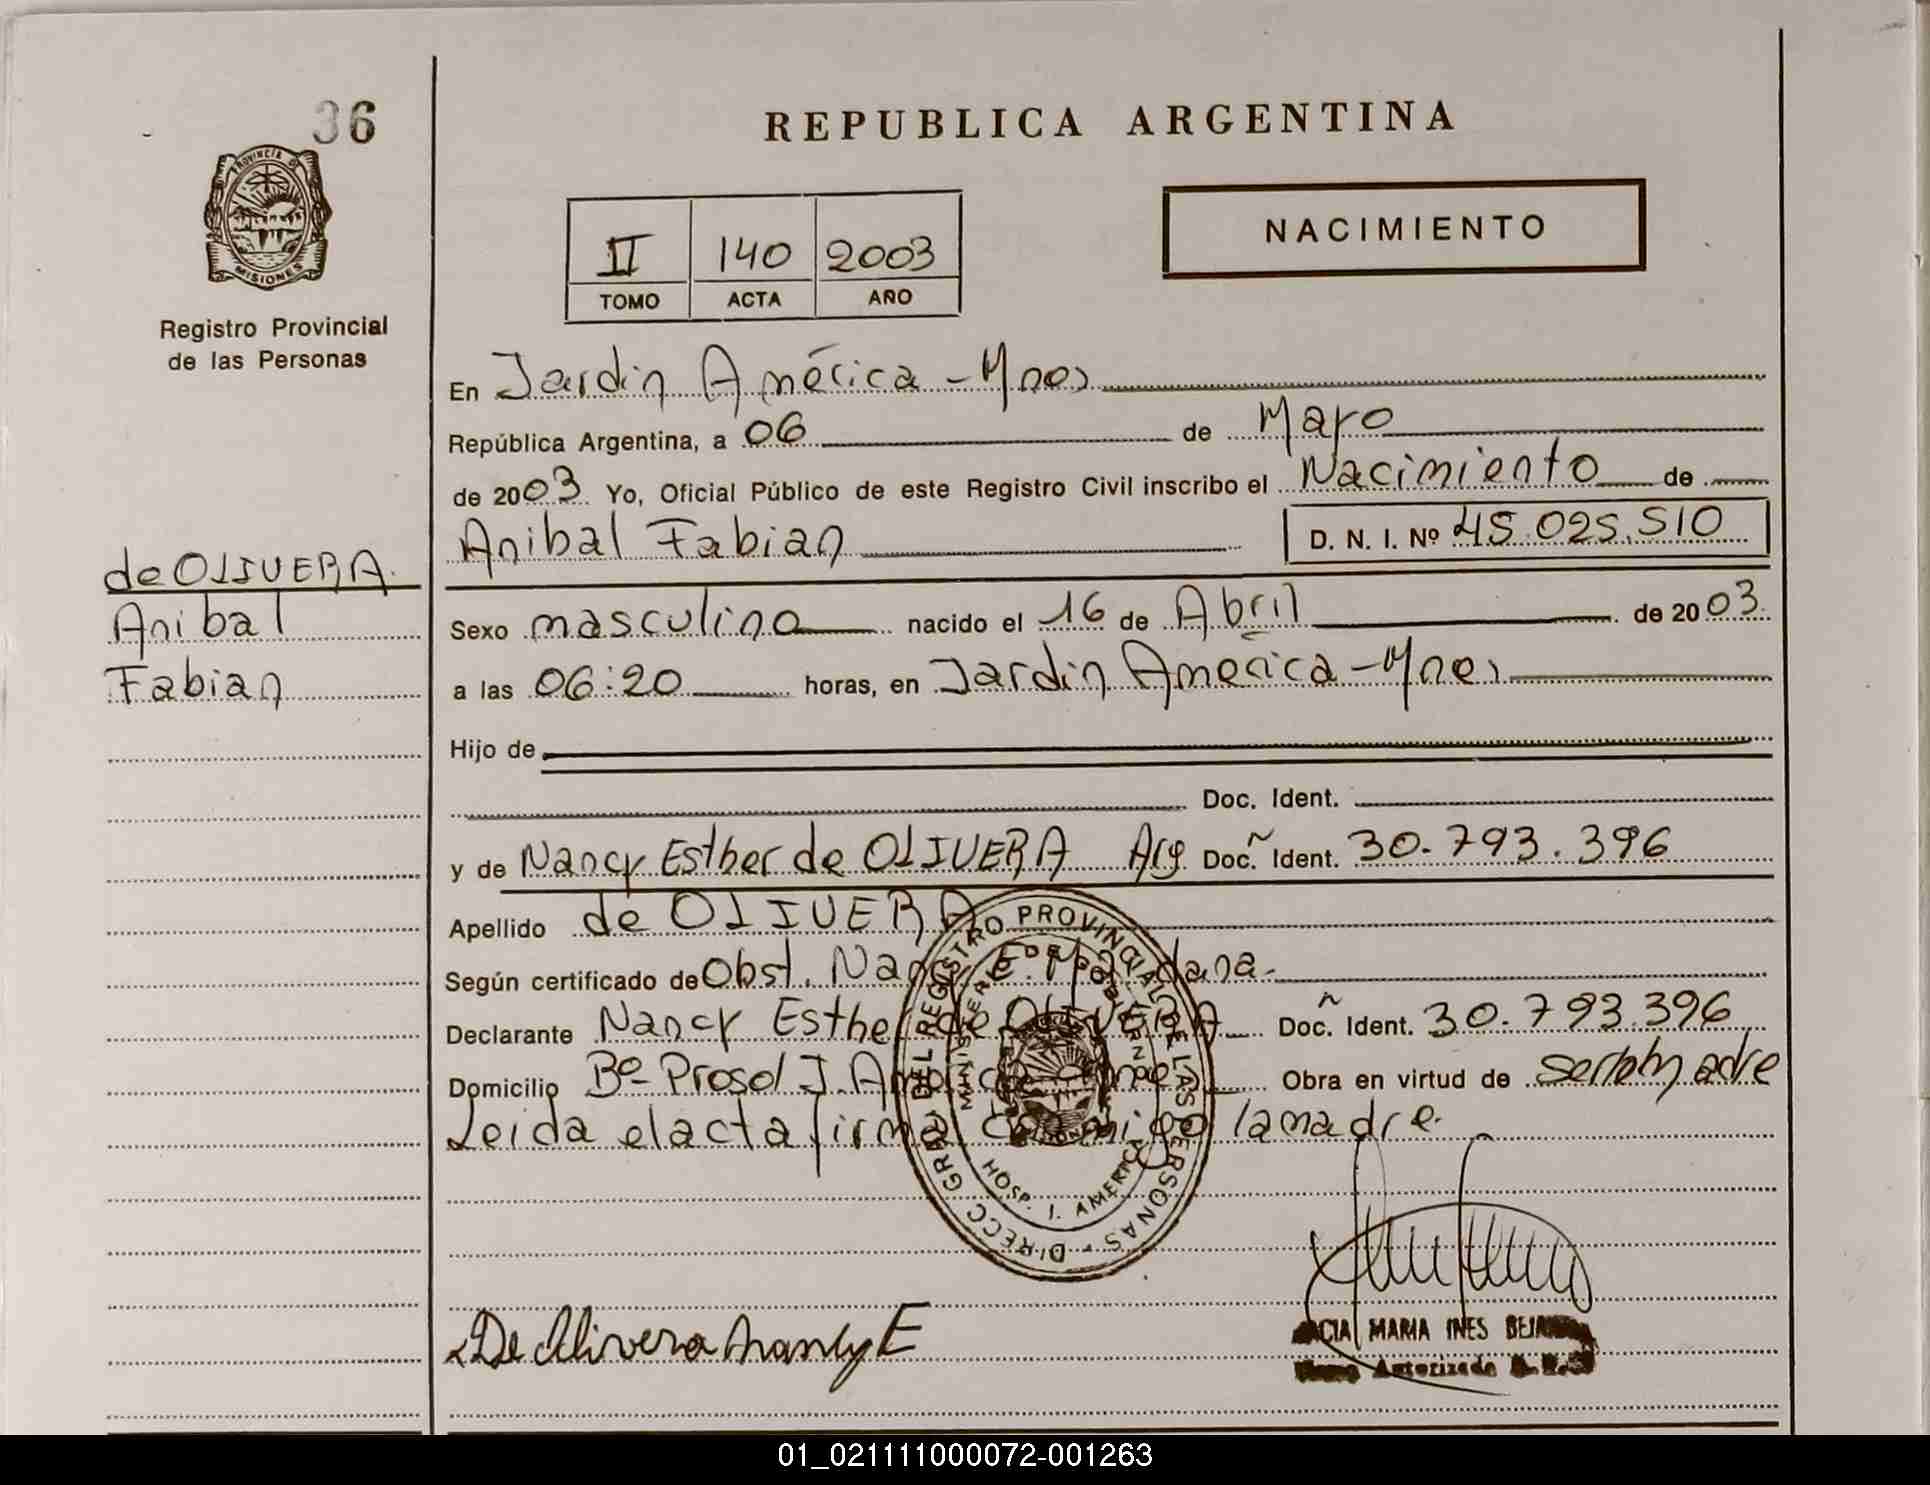 36
PROVINCIA DE
MISIONES
Registro Provincial
de las Personas
REPUBLICA ARGENTINA
NACIMIENTO
II 140 2003
TOMO ACTA AÑO
En Jardin América - Mnes
República Argentina, a 06 de Mayo
de 2003 Yo, Oficial Público de este Registro Civil inscribo el Nacimiento de
Anibal Fabian D. N. I. Nº 45.025.510
de OLIVERA
Anibal
Fabian
Sexo masculino nacido el 16 de Abril de 2003
a las 06:20 horas, en Jardin América - Mnes
Hijo de
Doc. Ident.
y de Nancy Esther de OLIVERA Arg. Doc. Ident. 30.793.396
Apellido de OLIVERA
Según certificado de Obst.
Declarante Nancy Esther de OLIVERA Doc. Ident. 30.793.396
Domicilio Bº Prosol J. América Mnes Obra en virtud de ser la madre
Leida el acta firma conmigo la madre.
DIRECC GRAL DEL REGISTRO PROVINCIAL DE LAS PERSONAS
MINISTERIO DE GOBIERNO
HOSP. J. AMERICA
De Olivera Nancy E
MARIA INES
Autorizada
01_021111000072-001263